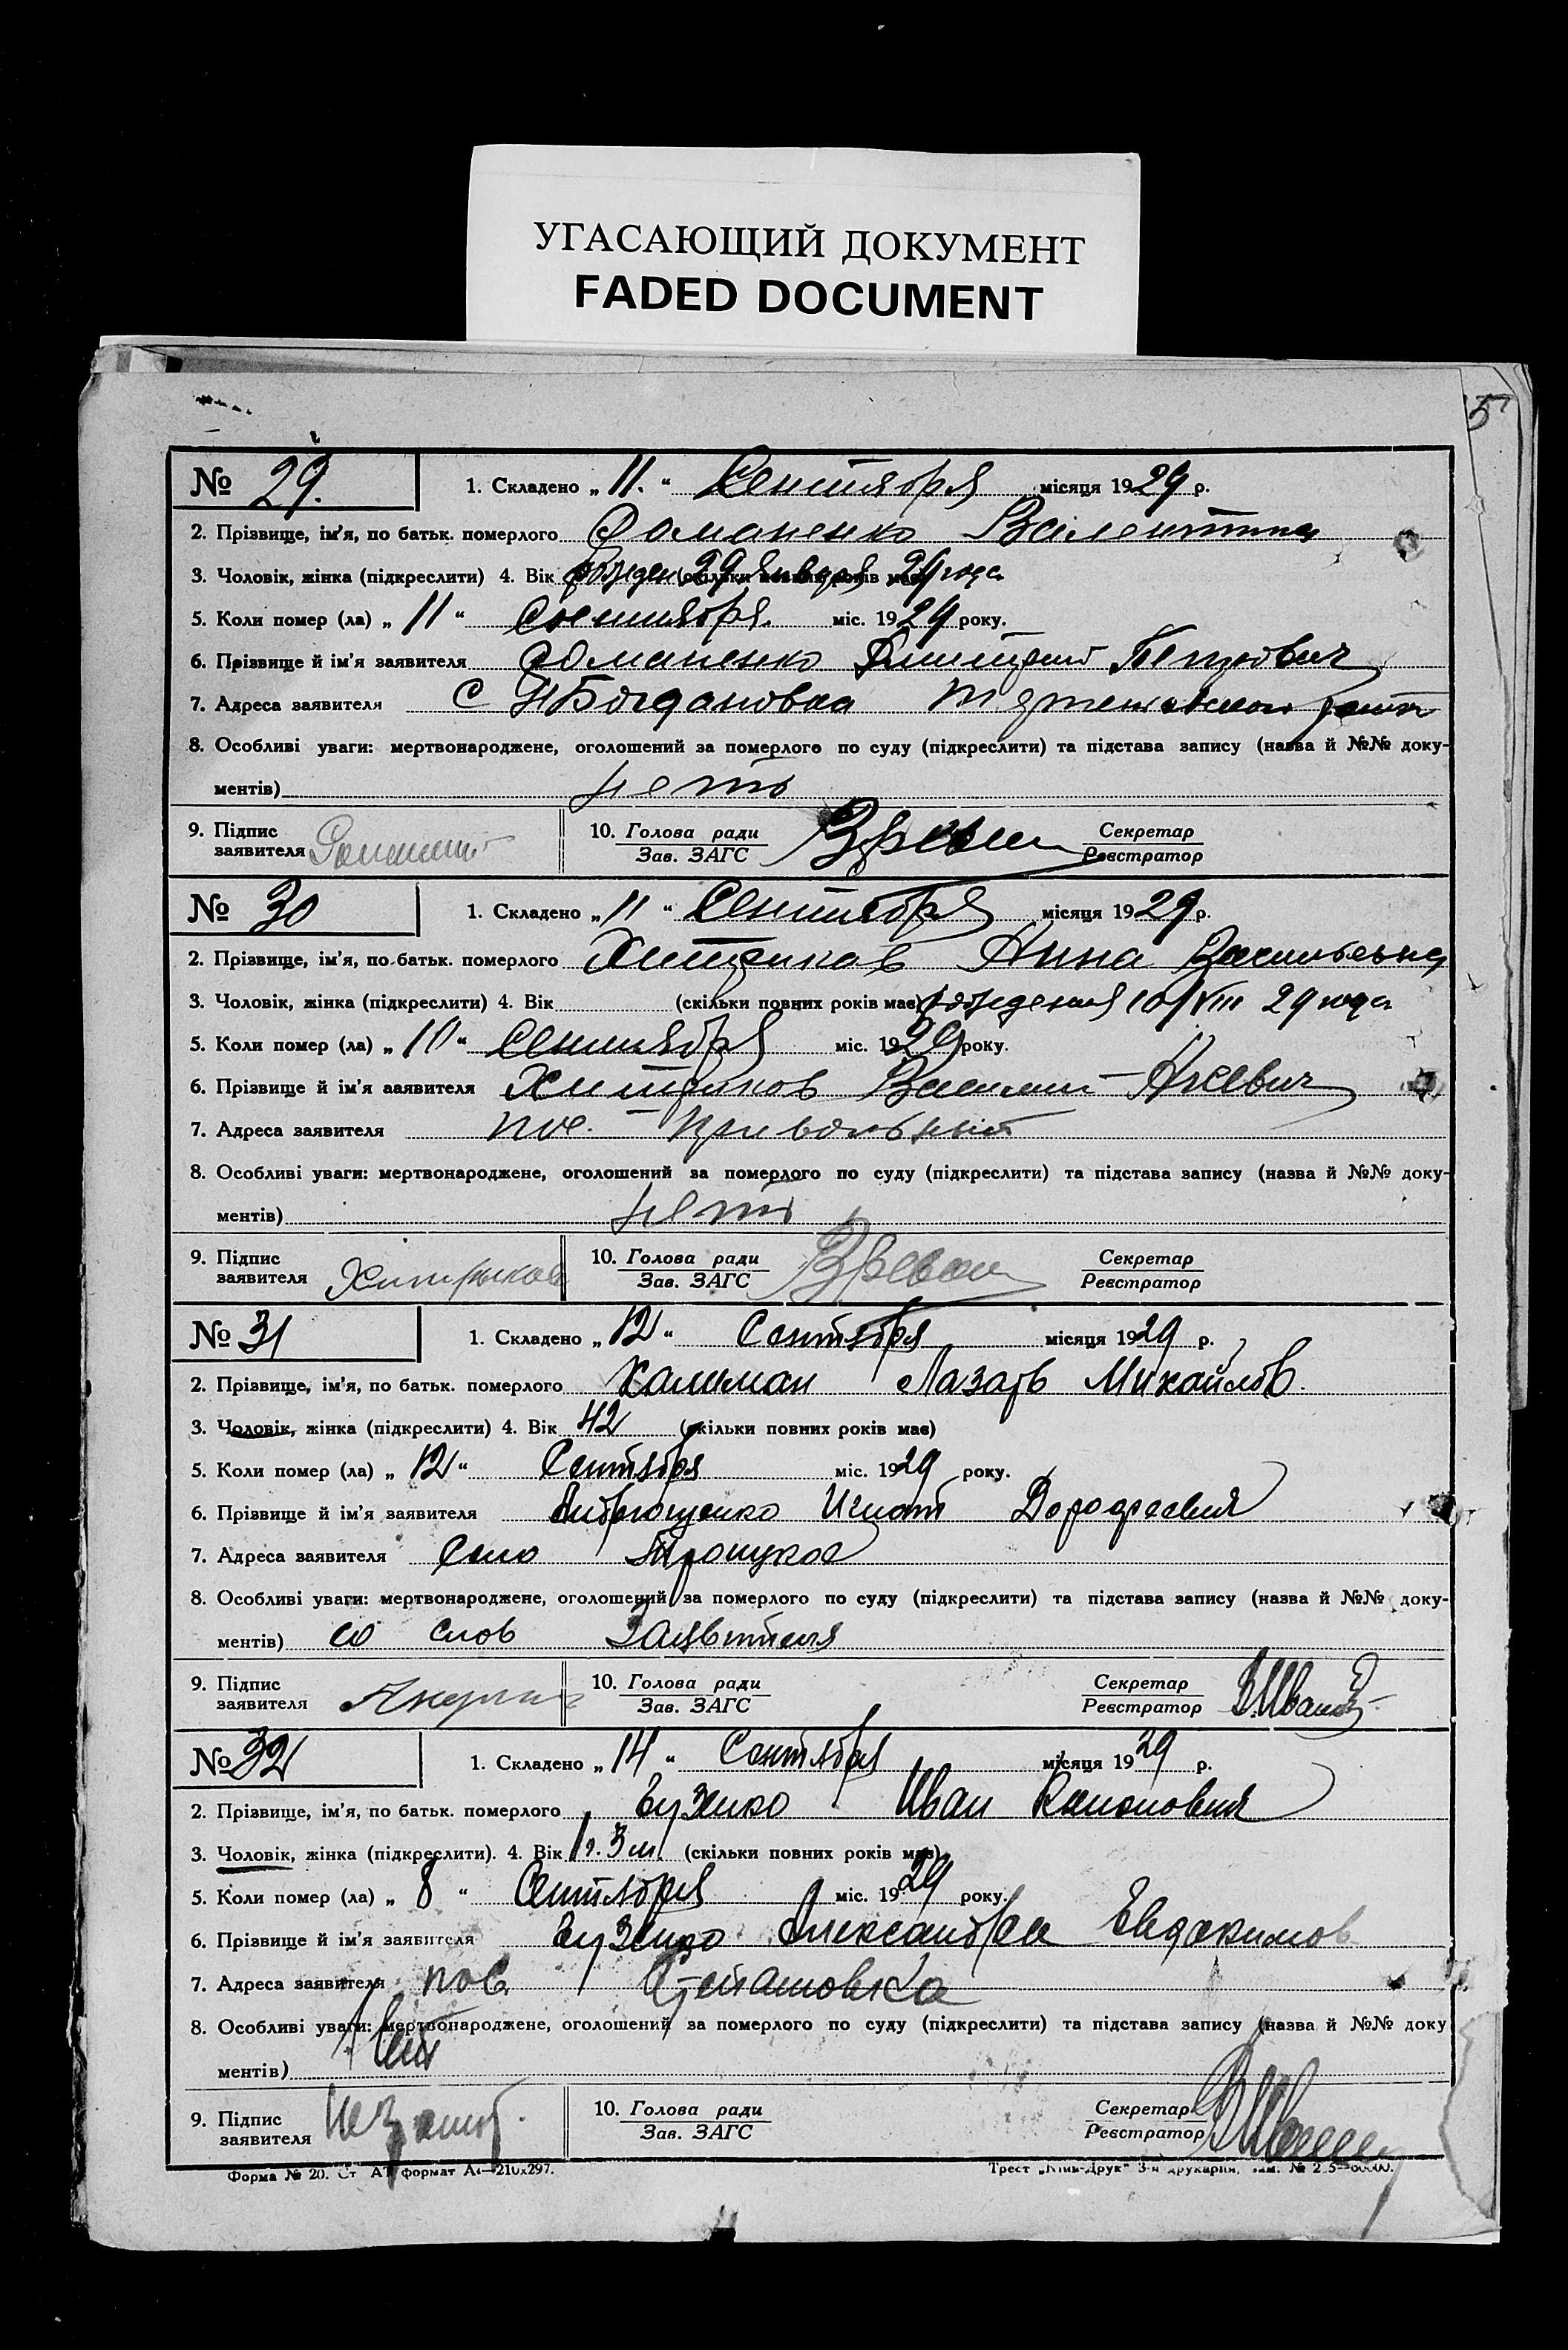 УГАСАЮЩИЙ ДОКУМЕНТ
FADED DOCUMENT
5
№ 29. 1. Складено „ 11. “ Сентября місяця 1929 р.
2. Прізвище, ім'я, по батьк. померлого Романенко Валентина
3. Чоловік, жінка (підкреслити) 4. Вік рожден 29 Января 29 года (скільки повних років має)
5. Коли помер (ла) „ 11 “ Сентября. міс. 1929 року.
6. Прізвище й ім'я заявителя Романенко Дмитрий Петрович
7. Адреса заявителя С Н Богдановка
8. Особливі уваги: мертвонароджене, оголошений за померлого по суду (підкреслити) та підстава запису (назва й №№ доку-
ментів) нетъ
9. Підпис заявителя 10. Голова ради Зав. ЗАГС Секретар Реєстратор
№ 30 1. Складено „ 11 “ Сентября місяця 1929 р.
2. Прізвище, ім'я, по батьк. померлого Хитриков Анна Васильевна
3. Чоловік, жінка (підкреслити) 4. Вік (скільки повних років має) рождения 10/VIII 29 года
5. Коли помер (ла) „ 10 “ Сентября міс. 1929 року.
6. Прізвище й ім'я заявителя Хитриков Василий
7. Адреса заявителя пос. Привольный
8. Особливі уваги: мертвонароджене, оголошений за померлого по суду (підкреслити) та підстава запису (назва й №№ доку-
ментів) нетъ
9. Підпис заявителя Хитрыков 10. Голова ради Зав. ЗАГС Секретар Реєстратор
№ 31 1. Складено „ 12 “ Сентября місяця 1929 р.
2. Прізвище, ім'я, по батьк. померлого Калиман Лазарь Михайлов.
3. Чоловік, жінка (підкреслити) 4. Вік 42 (скільки повних років має)
5. Коли помер (ла) „ 12 “ Сентября міс. 1929 року.
6. Прізвище й ім'я заявителя Игнат Дорофеевич
7. Адреса заявителя Село Троицкое
8. Особливі уваги: мертвонароджене, оголошений за померлого по суду (підкреслити) та підстава запису (назва й №№ доку-
ментів) со слов Заявителя
9. Підпис заявителя 10. Голова ради Зав. ЗАГС Секретар Реєстратор
№ 32 1. Складено „ 14 “ Сентября місяця 1929 р.
2. Прізвище, ім'я, по батьк. померлого Гузенко Иван
3. Чоловік, жінка (підкреслити). 4. Вік 1 г. 3 м. (скільки повних років має)
5. Коли помер (ла) „ 8 “ Сентября міс. 1929 року.
6. Прізвище й ім'я заявителя Гузенко Александра Евдокимов
7. Адреса заявителя пос. Степановка
8. Особливі уваги: мертвонароджене, оголошений за померлого по суду (підкреслити) та підстава запису (назва й №№ доку
ментів) Нет
9. Підпис заявителя 10. Голова ради Зав. ЗАГС Секретар Реєстратор
Форма № 20. Ст. формат А4—210х297. Трест „Київ-Друк“ 3-я друкарня,